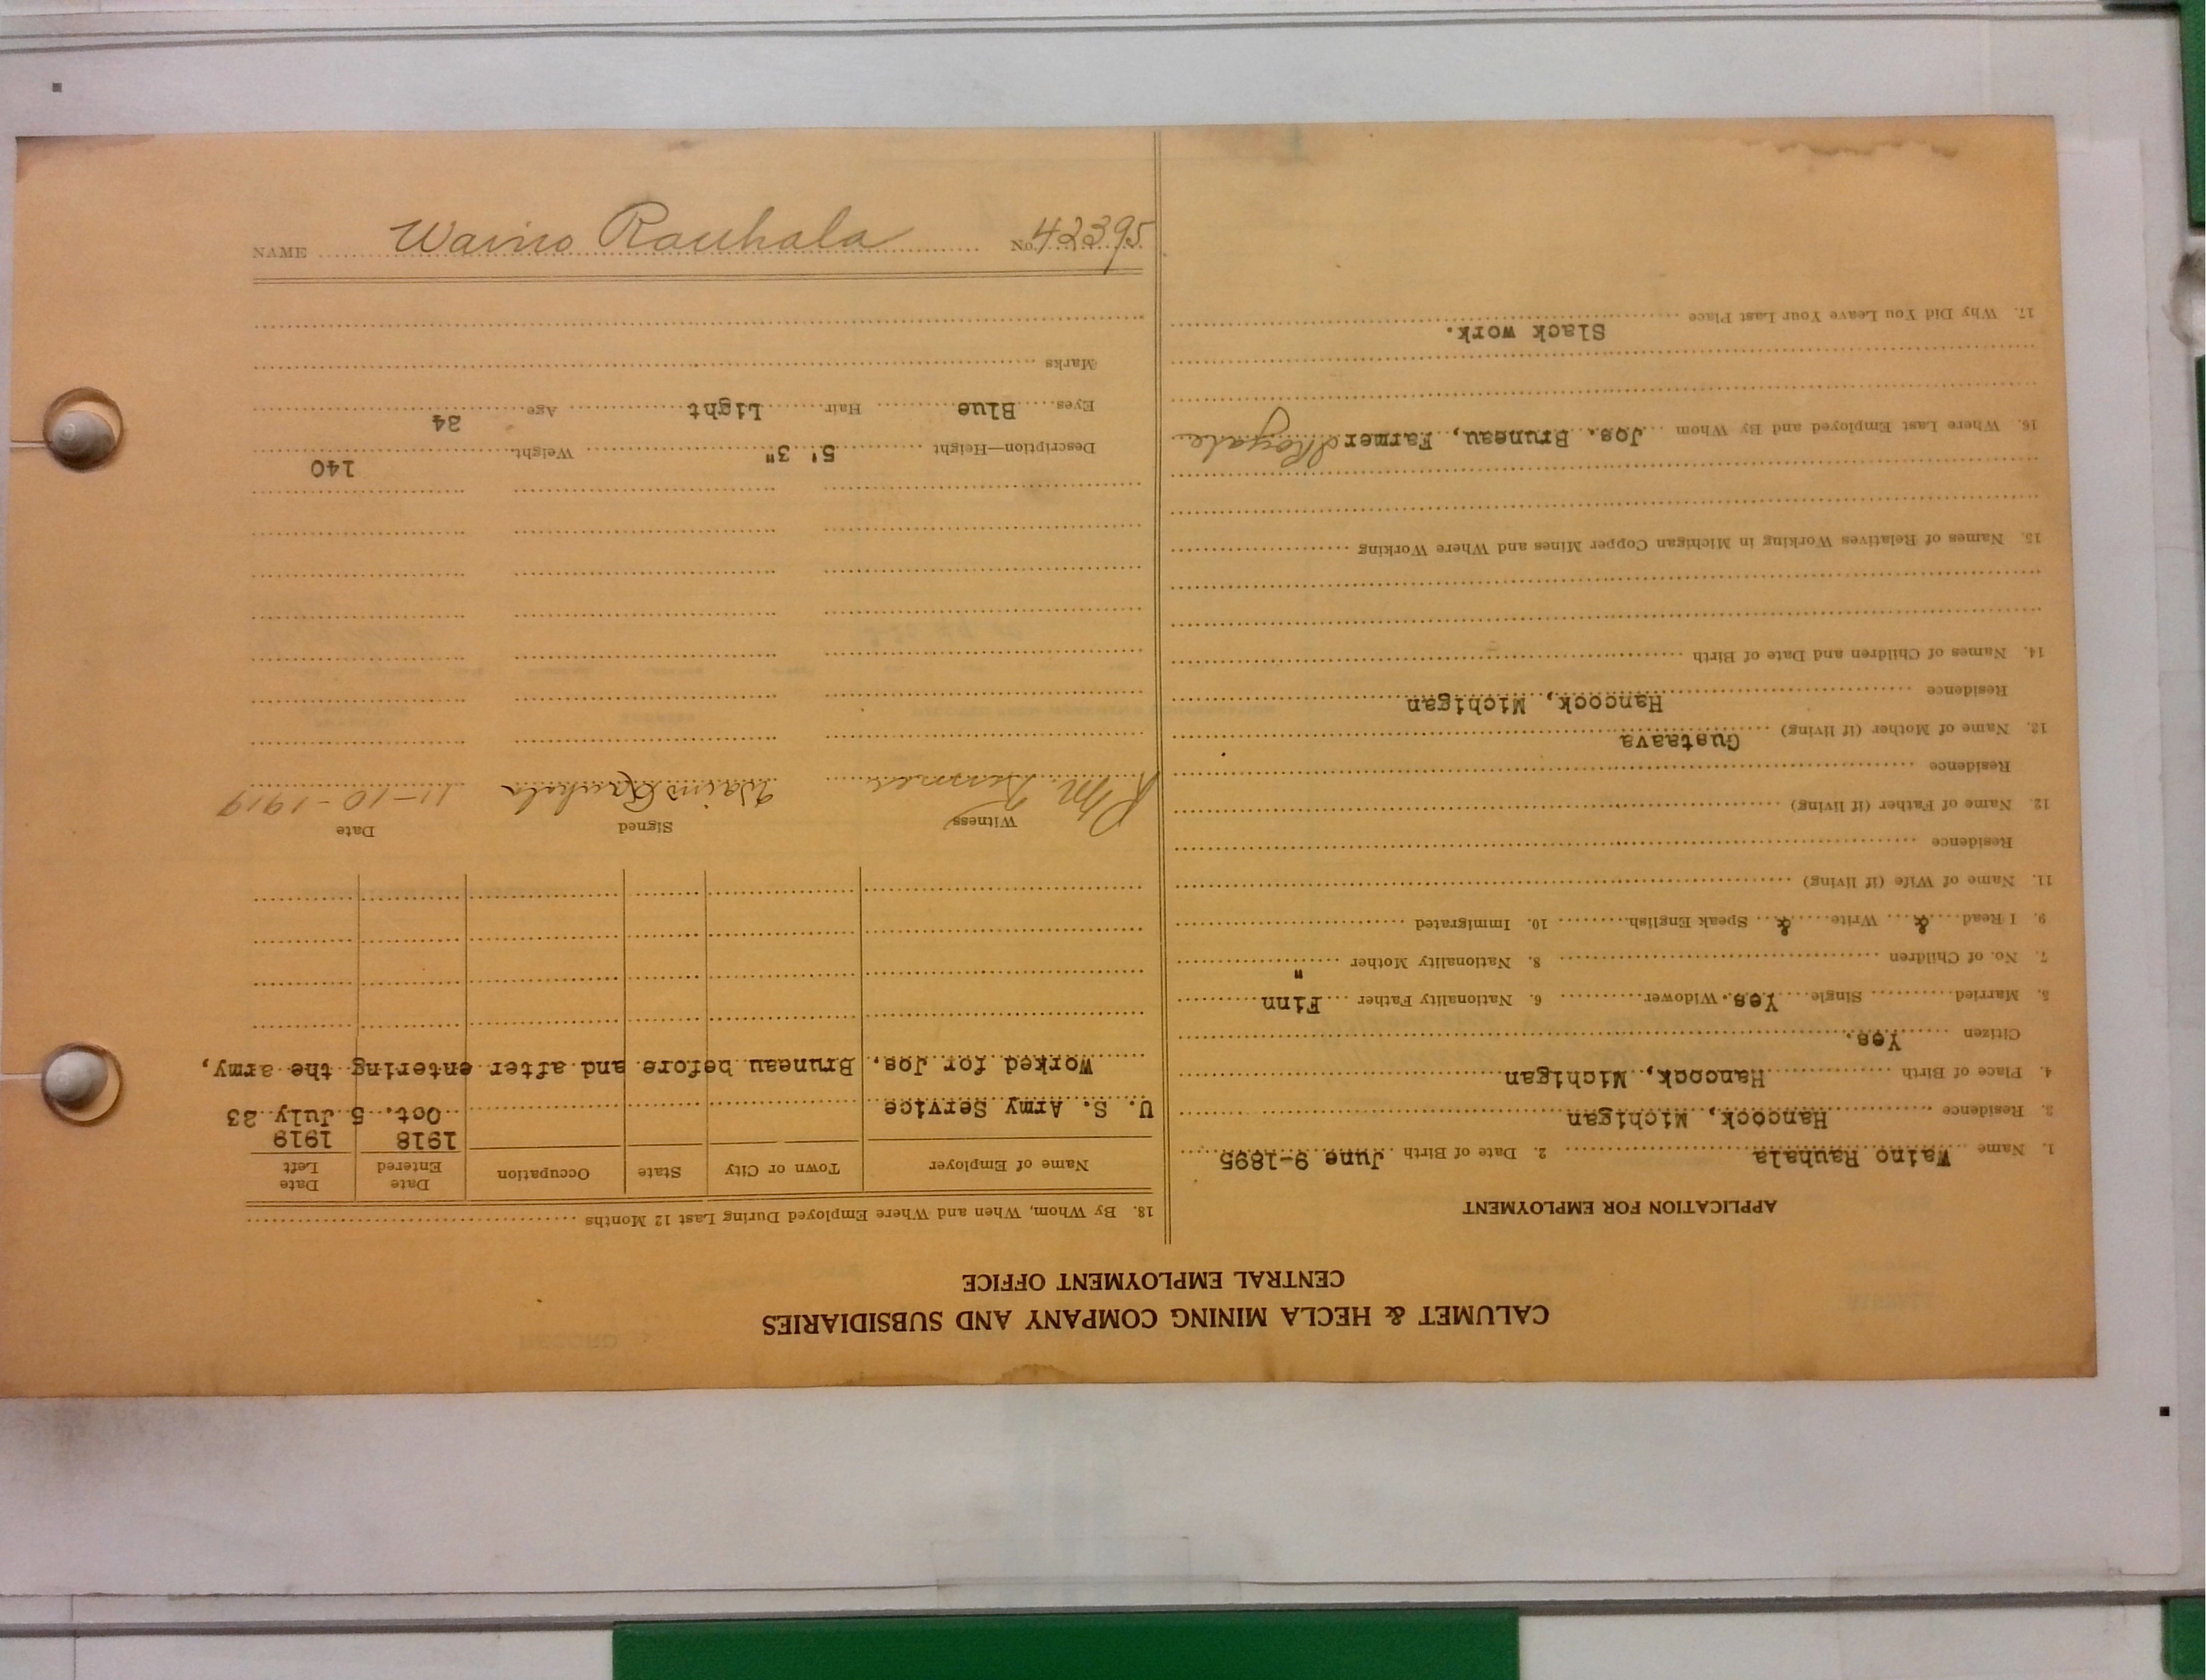 CALUMET & HECLA MINING COMPANY AND SUBSIDIARIES
CENTRAL EMPLOYMENT OFFICE
APPLICATION FOR EMPLOYMENT
1. Name Waino Rauhala 2. Date of Birth June 9-1895
3. Residence Hancock, Michigan
4. Place of Birth Hancock, Michigan
Citizen Yes.
5. Married Single Yes. Widower 6. Nationality Father Finn
7. No. of Children 8. Nationality Mother "
9. I Read & Write & Speak English 10. Immigrated
11. Name of Wife (if living)
Residence
12. Name of Father (if living)
Residence
13. Name of Mother (if living) Gustaava
Residence Hancock, Michigan
14. Names of Children and Date of Birth
15. Names of Relatives Working in Michigan Copper Mines and Where Working
16. Where Last Employed and By Whom Jos. Bruneau, Farmer
17. Why Did You Leave Your Last Place
Slack work.
18. By Whom, When and Where Employed During Last 12 Months
Name of Employer Town or City State Occupation Date Entered Date Left
1918 1919
U. S. Army Service Oct. 5 July 23
Worked for Jos. Bruneau before and after entering the army,
Witness Signed Date
R M Waino Rauhala 11-10-1919
Description—Height 5' 3" Weight 140
Eyes Blue Hair Light Age 24
Marks
NAME Waino Rauhala No. 42395